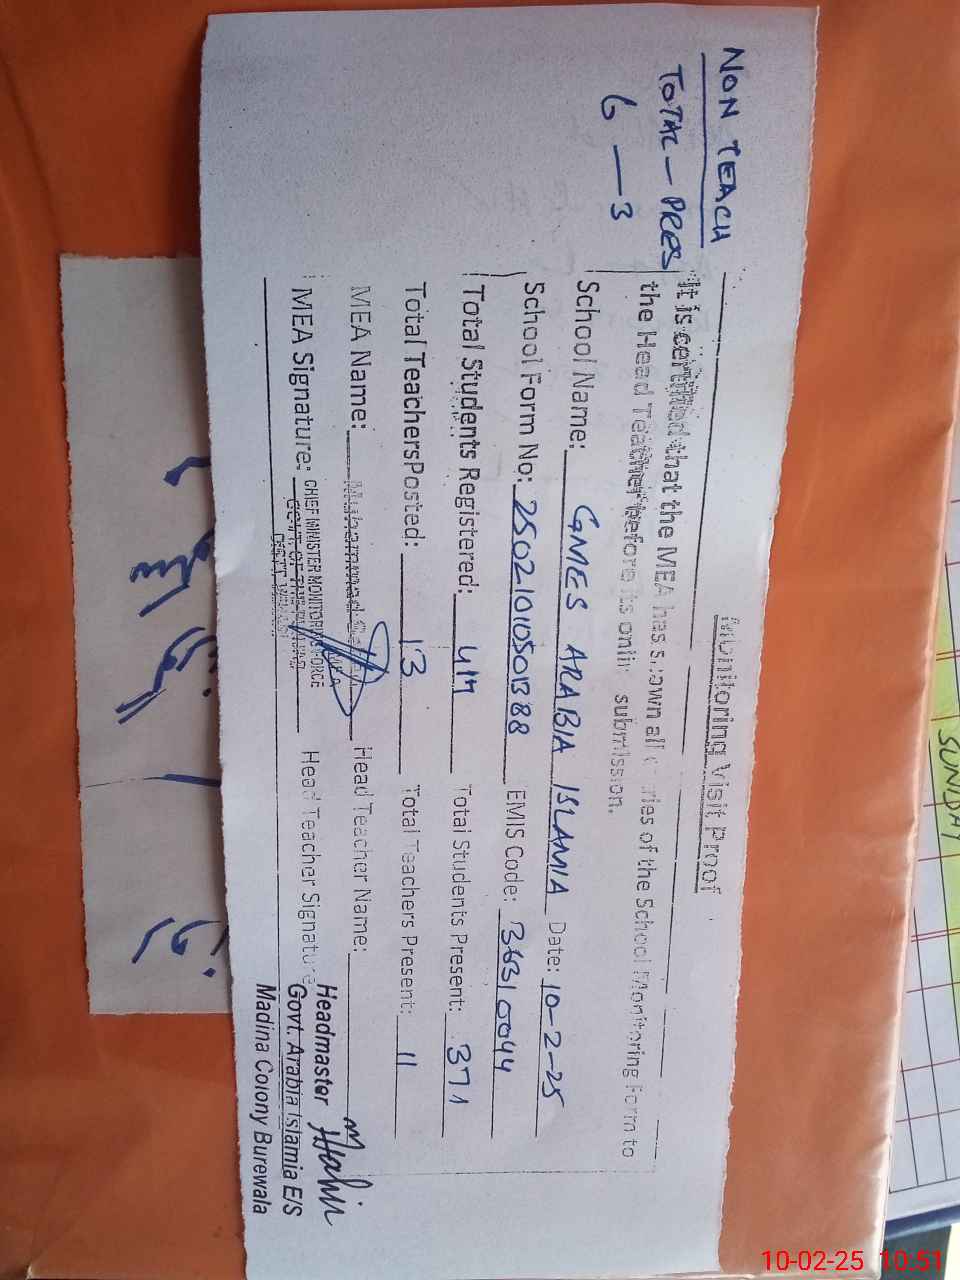 NON TEACH
TOTAL — PRES
6 — 3
Monitoring Visit Proof
It is certified that the MEA has shown all entries of the School Monitoring Form to
the Head Teacher before its online submission.
School Name: GMES ARABIA ISLAMIA Date: 10-2-25
School Form No: 25021010501388 EMIS Code: 36310044
Total Students Registered: Total Students Present: 371
Total Teachers Posted: 13 Total Teachers Present: 11
MEA Name: Muhammad Head Teacher Name:
MEA Signature: Head Teacher Signature
CHIEF MINISTER MONITORING FORCE
Headmaster
Govt. Arabia Islamia E/S
Madina Colony Burewala
SUNDAY
10-02-25 10:51